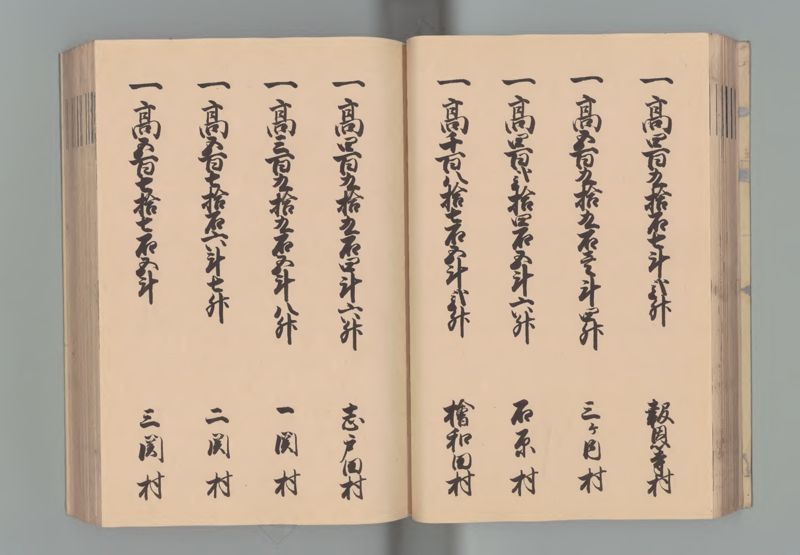 一高四百九拾石七斗弐升 報恩寺村
一高五百九拾九石壱斗四升 三ケ内村
一高四百弐拾四石五斗六升 石原村
一高千百八拾七石五斗弐升 檜和田村
一高四百九拾五石四斗六升 志戸田村
一高三百九拾九石五斗八升 一関村
一高五百七拾石六斗七升 二関村
一高五百七拾七石五斗 三関村